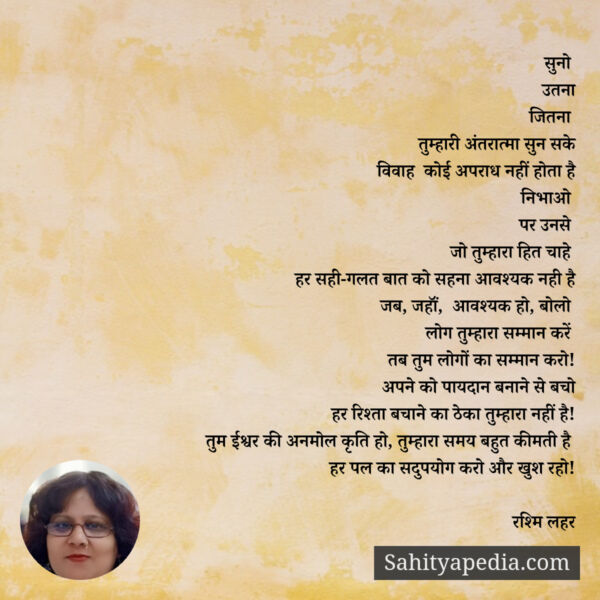 सुनो
उतना
जितना
तुम्हारी अंतरात्मा सुन सके
विवाह कोई अपराध नहीं होता है
निभाओ
पर उनसे
जो तुम्हारा हित चाहे
हर सही-गलत बात को सहना आवश्यक नही है
जब, जहाॅं, आवश्यक हो, बोलो
लोग तुम्हारा सम्मान करें
तब तुम लोगों का सम्मान करो!
अपने को पायदान बनाने से बचो
हर रिश्ता बचाने का ठेका तुम्हारा नहीं है!
तुम ईश्वर की अनमोल कृति हो, तुम्हारा समय बहुत कीमती है
हर पल का सदुपयोग करो और खुश रहो!
रश्मि लहर
Sahityapedia.com